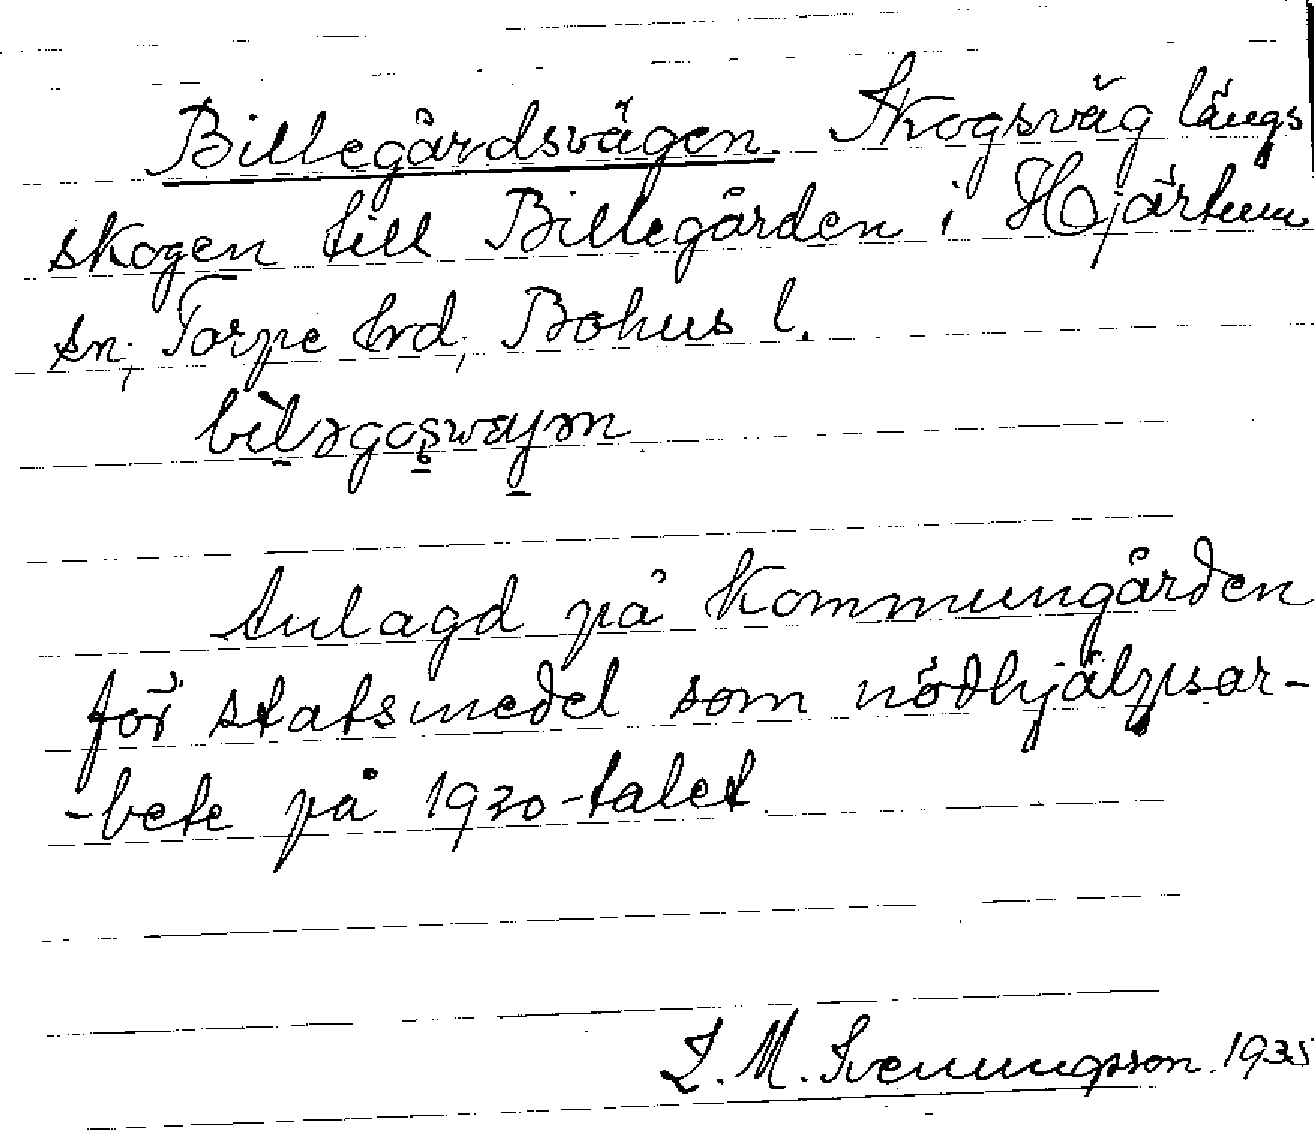 Billegårdsvägen. Skogsväg längs
skogen till Billegården i Hjärtum
sn, Torpe hrd, Bohus l.
Anlagd på Kommungården
för statsmedel som nödhjälpsar-
-bete på 1930-talet
Z. M. Svenungsson 1935